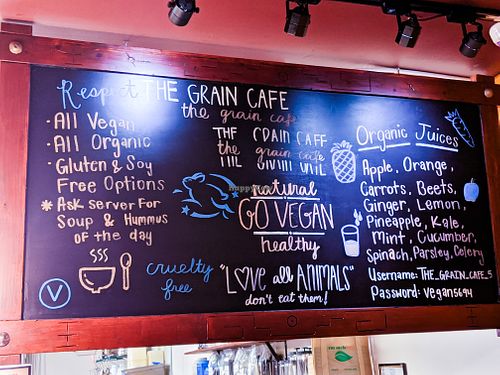 Respect THE GRAIN CAFE
the grain cafe
the grain cafe
· All Vegan
· All Organic
· Gluten & Soy
Free Options
* Ask Server For
Soup & Hummus
of the day
V
cruelty
free
natural
GO VEGAN
healthy
"LOVE all ANIMALS"
don't eat them!
Organic Juices
Apple, Orange,
Carrots, Beets,
Ginger, Lemon,
Pineapple, Kale,
Mint, Cucumber,
Spinach, Parsley, Celery
Username: THE_GRAIN_CAFE_5
Password: Vegan5694